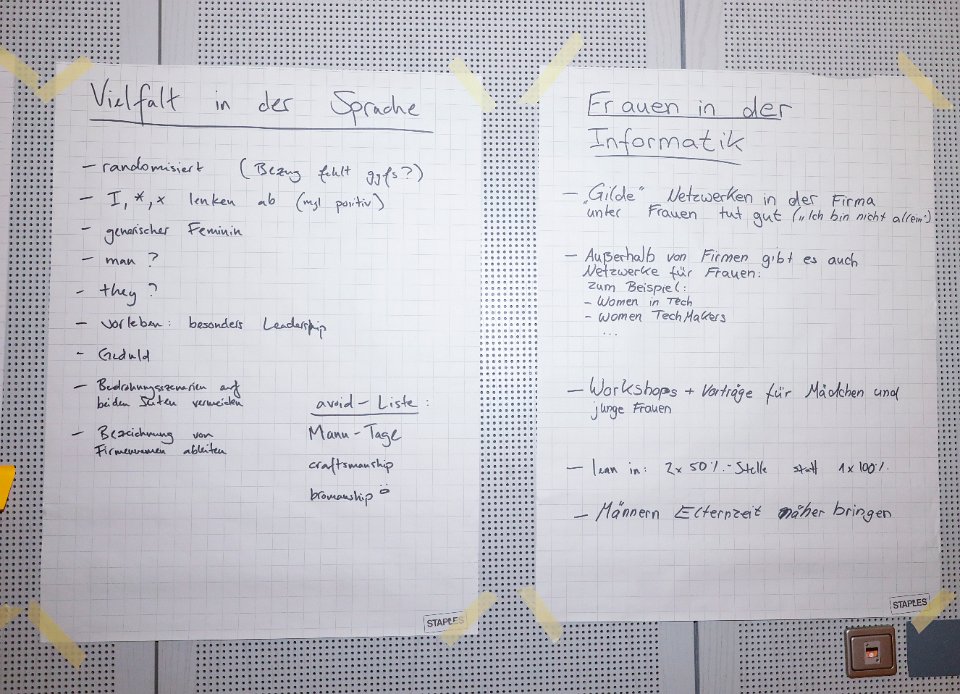 Vielfalt in der Sprache
- randomisiert (Bezug fehlt ggfs?)
- I, *, x lenken ab (mgl positiv)
- generischer Feminin
- man ?
- they ?
- vorleben: besonders Leadership
- Geduld
- Bedrohungsszenarien auf
beiden Seiten vermeiden
- Bezeichnung von
Firmennamen ableiten
avoid-Liste:
Mann-Tage
craftsmanship
bromanship
STAPLES
Frauen in der
Informatik
- „Gilde" Netzwerken in der Firma
unter Frauen tut gut („Ich bin nicht allein")
- Außerhalb von Firmen gibt es auch
Netzwerke für Frauen:
zum Beispiel:
- Women in Tech
- Women TechMakers
...
- Workshops + Vorträge für Mädchen und
junge Frauen
- lean in: 2x 50%-Stelle statt 1x100%
- Männern Elternzeit näher bringen
STAPLES